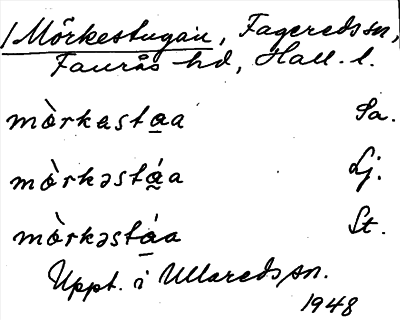 / Mörkestugan, Fageredssn,
Faurås hd, Hall. l.
mòrkasta̲a Sa.
mòrkəstá̲a Lj.
mòrkəstá̲a St.
Uppt. i Ullareds sn.
1948